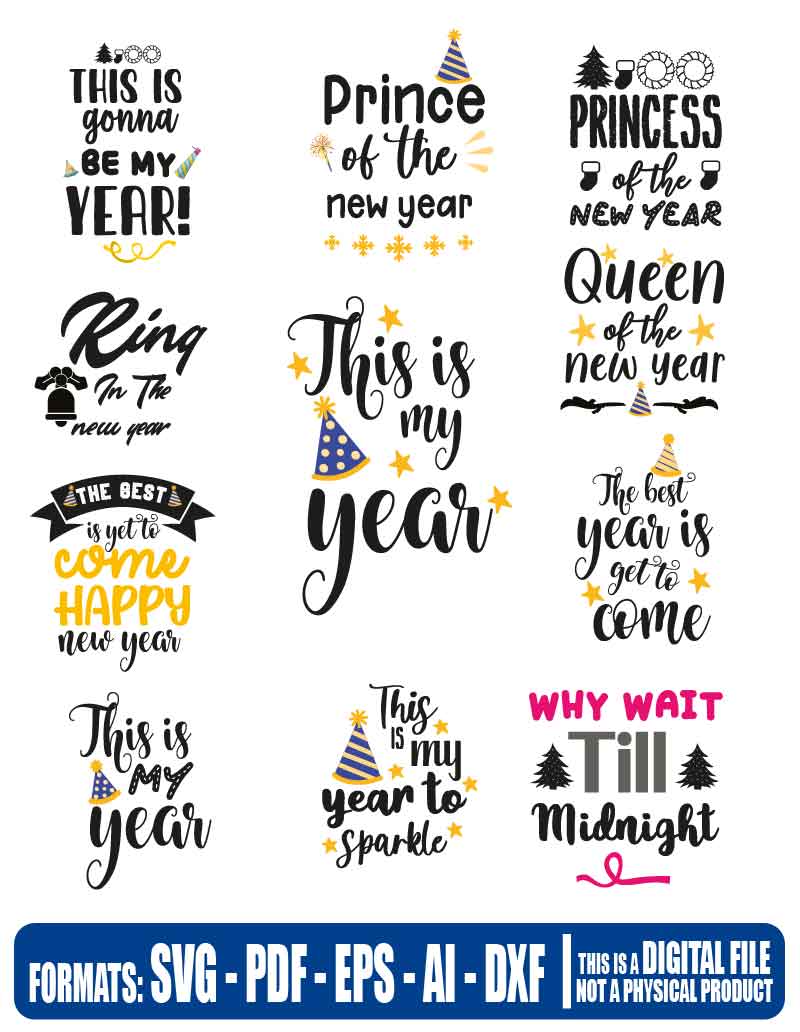 THIS IS
gonna
BE MY
YEAR!
Prince
of the
new year
PRINCESS
of the
NEW YEAR
Queen
of the
new year
Ring
In The
new year
This is
my
year
THE BEST
is yet to
come
HAPPY
new year
The best
year is
get to
come
This is
MY
year
This
IS
my
year to
sparkle
WHY WAIT
Till
Midnight
FORMATS: SVG - PDF - EPS - AI - DXF
THIS IS A DIGITAL FILE
NOT A PHYSICAL PRODUCT